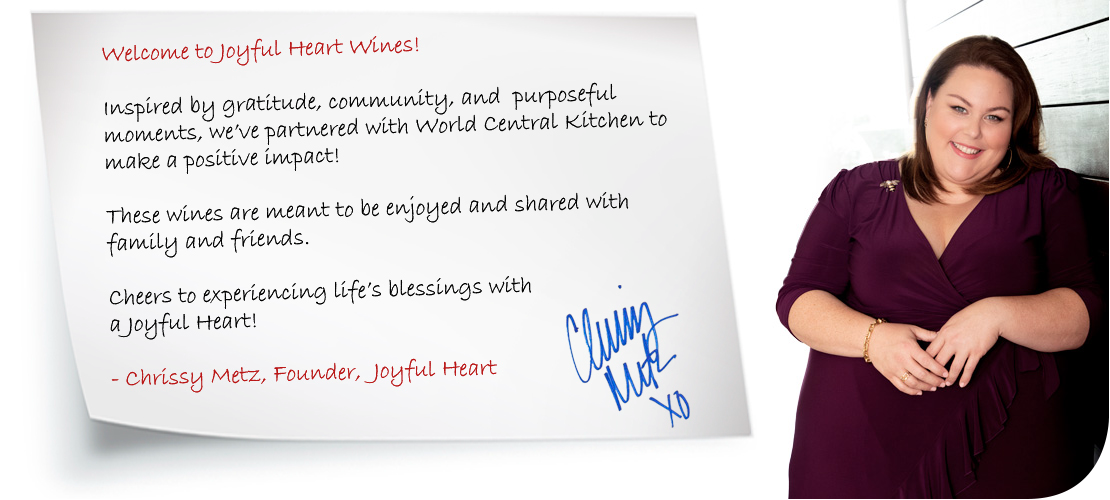 Welcome to Joyful Heart Wines!
Inspired by gratitude, community, and purposeful
moments, we've partnered with World Central Kitchen to
make a positive impact!
These wines are meant to be enjoyed and shared with
family and friends.
Cheers to experiencing life's blessings with
a Joyful Heart!
- Chrissy Metz, Founder, Joyful Heart
Chrissy
Metz
XO